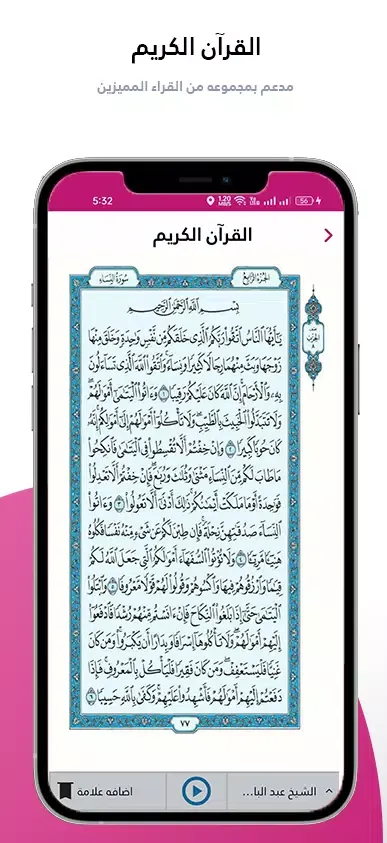 القرآن الكريم
مدعم بمجموعه من القراء المميزين
5:32
1.20 MB/S
56
القرآن الكريم
الجزء الرابع
سورة النساء
بسم الله الرحمن الرحيم
يَٰٓأَيُّهَا ٱلنَّاسُ ٱتَّقُوا۟ رَبَّكُمُ ٱلَّذِى خَلَقَكُم مِّن نَّفْسٍ وَٰحِدَةٍ وَخَلَقَ مِنْهَا
زَوْجَهَا وَبَثَّ مِنْهُمَا رِجَالًا كَثِيرًا وَنِسَآءً وَٱتَّقُوا۟ ٱللَّهَ ٱلَّذِى تَسَآءَلُونَ
بِهِۦ وَٱلْأَرْحَامَ إِنَّ ٱللَّهَ كَانَ عَلَيْكُمْ رَقِيبًا ١ وَءَاتُوا۟ ٱلْيَتَٰمَىٰٓ أَمْوَٰلَهُمْ
وَلَا تَتَبَدَّلُوا۟ ٱلْخَبِيثَ بِٱلطَّيِّبِ وَلَا تَأْكُلُوٓا۟ أَمْوَٰلَهُمْ إِلَىٰٓ أَمْوَٰلِكُمْ إِنَّهُۥ
كَانَ حُوبًا كَبِيرًا ٢ وَإِنْ خِفْتُمْ أَلَّا تُقْسِطُوا۟ فِى ٱلْيَتَٰمَىٰ فَٱنكِحُوا۟
مَا طَابَ لَكُم مِّنَ ٱلنِّسَآءِ مَثْنَىٰ وَثُلَٰثَ وَرُبَٰعَ فَإِنْ خِفْتُمْ أَلَّا تَعْدِلُوا۟
فَوَٰحِدَةً أَوْ مَا مَلَكَتْ أَيْمَٰنُكُمْ ذَٰلِكَ أَدْنَىٰٓ أَلَّا تَعُولُوا۟ ٣ وَءَاتُوا۟
ٱلنِّسَآءَ صَدُقَٰتِهِنَّ نِحْلَةً فَإِن طِبْنَ لَكُمْ عَن شَىْءٍ مِّنْهُ نَفْسًا فَكُلُوهُ
هَنِيٓـًٔا مَّرِيٓـًٔا ٤ وَلَا تُؤْتُوا۟ ٱلسُّفَهَآءَ أَمْوَٰلَكُمُ ٱلَّتِى جَعَلَ ٱللَّهُ لَكُمْ
قِيَٰمًا وَٱرْزُقُوهُمْ فِيهَا وَٱكْسُوهُمْ وَقُولُوا۟ لَهُمْ قَوْلًا مَّعْرُوفًا ٥ وَٱبْتَلُوا۟
ٱلْيَتَٰمَىٰ حَتَّىٰٓ إِذَا بَلَغُوا۟ ٱلنِّكَاحَ فَإِنْ ءَانَسْتُم مِّنْهُمْ رُشْدًا فَٱدْفَعُوٓا۟
إِلَيْهِمْ أَمْوَٰلَهُمْ وَلَا تَأْكُلُوهَآ إِسْرَافًا وَبِدَارًا أَن يَكْبَرُوا۟ وَمَن كَانَ
غَنِيًّا فَلْيَسْتَعْفِفْ وَمَن كَانَ فَقِيرًا فَلْيَأْكُلْ بِٱلْمَعْرُوفِ فَإِذَا
دَفَعْتُمْ إِلَيْهِمْ أَمْوَٰلَهُمْ فَأَشْهِدُوا۟ عَلَيْهِمْ وَكَفَىٰ بِٱللَّهِ حَسِيبًا ٦
٧٧
الشيخ عبد البا...
اضافه علامة